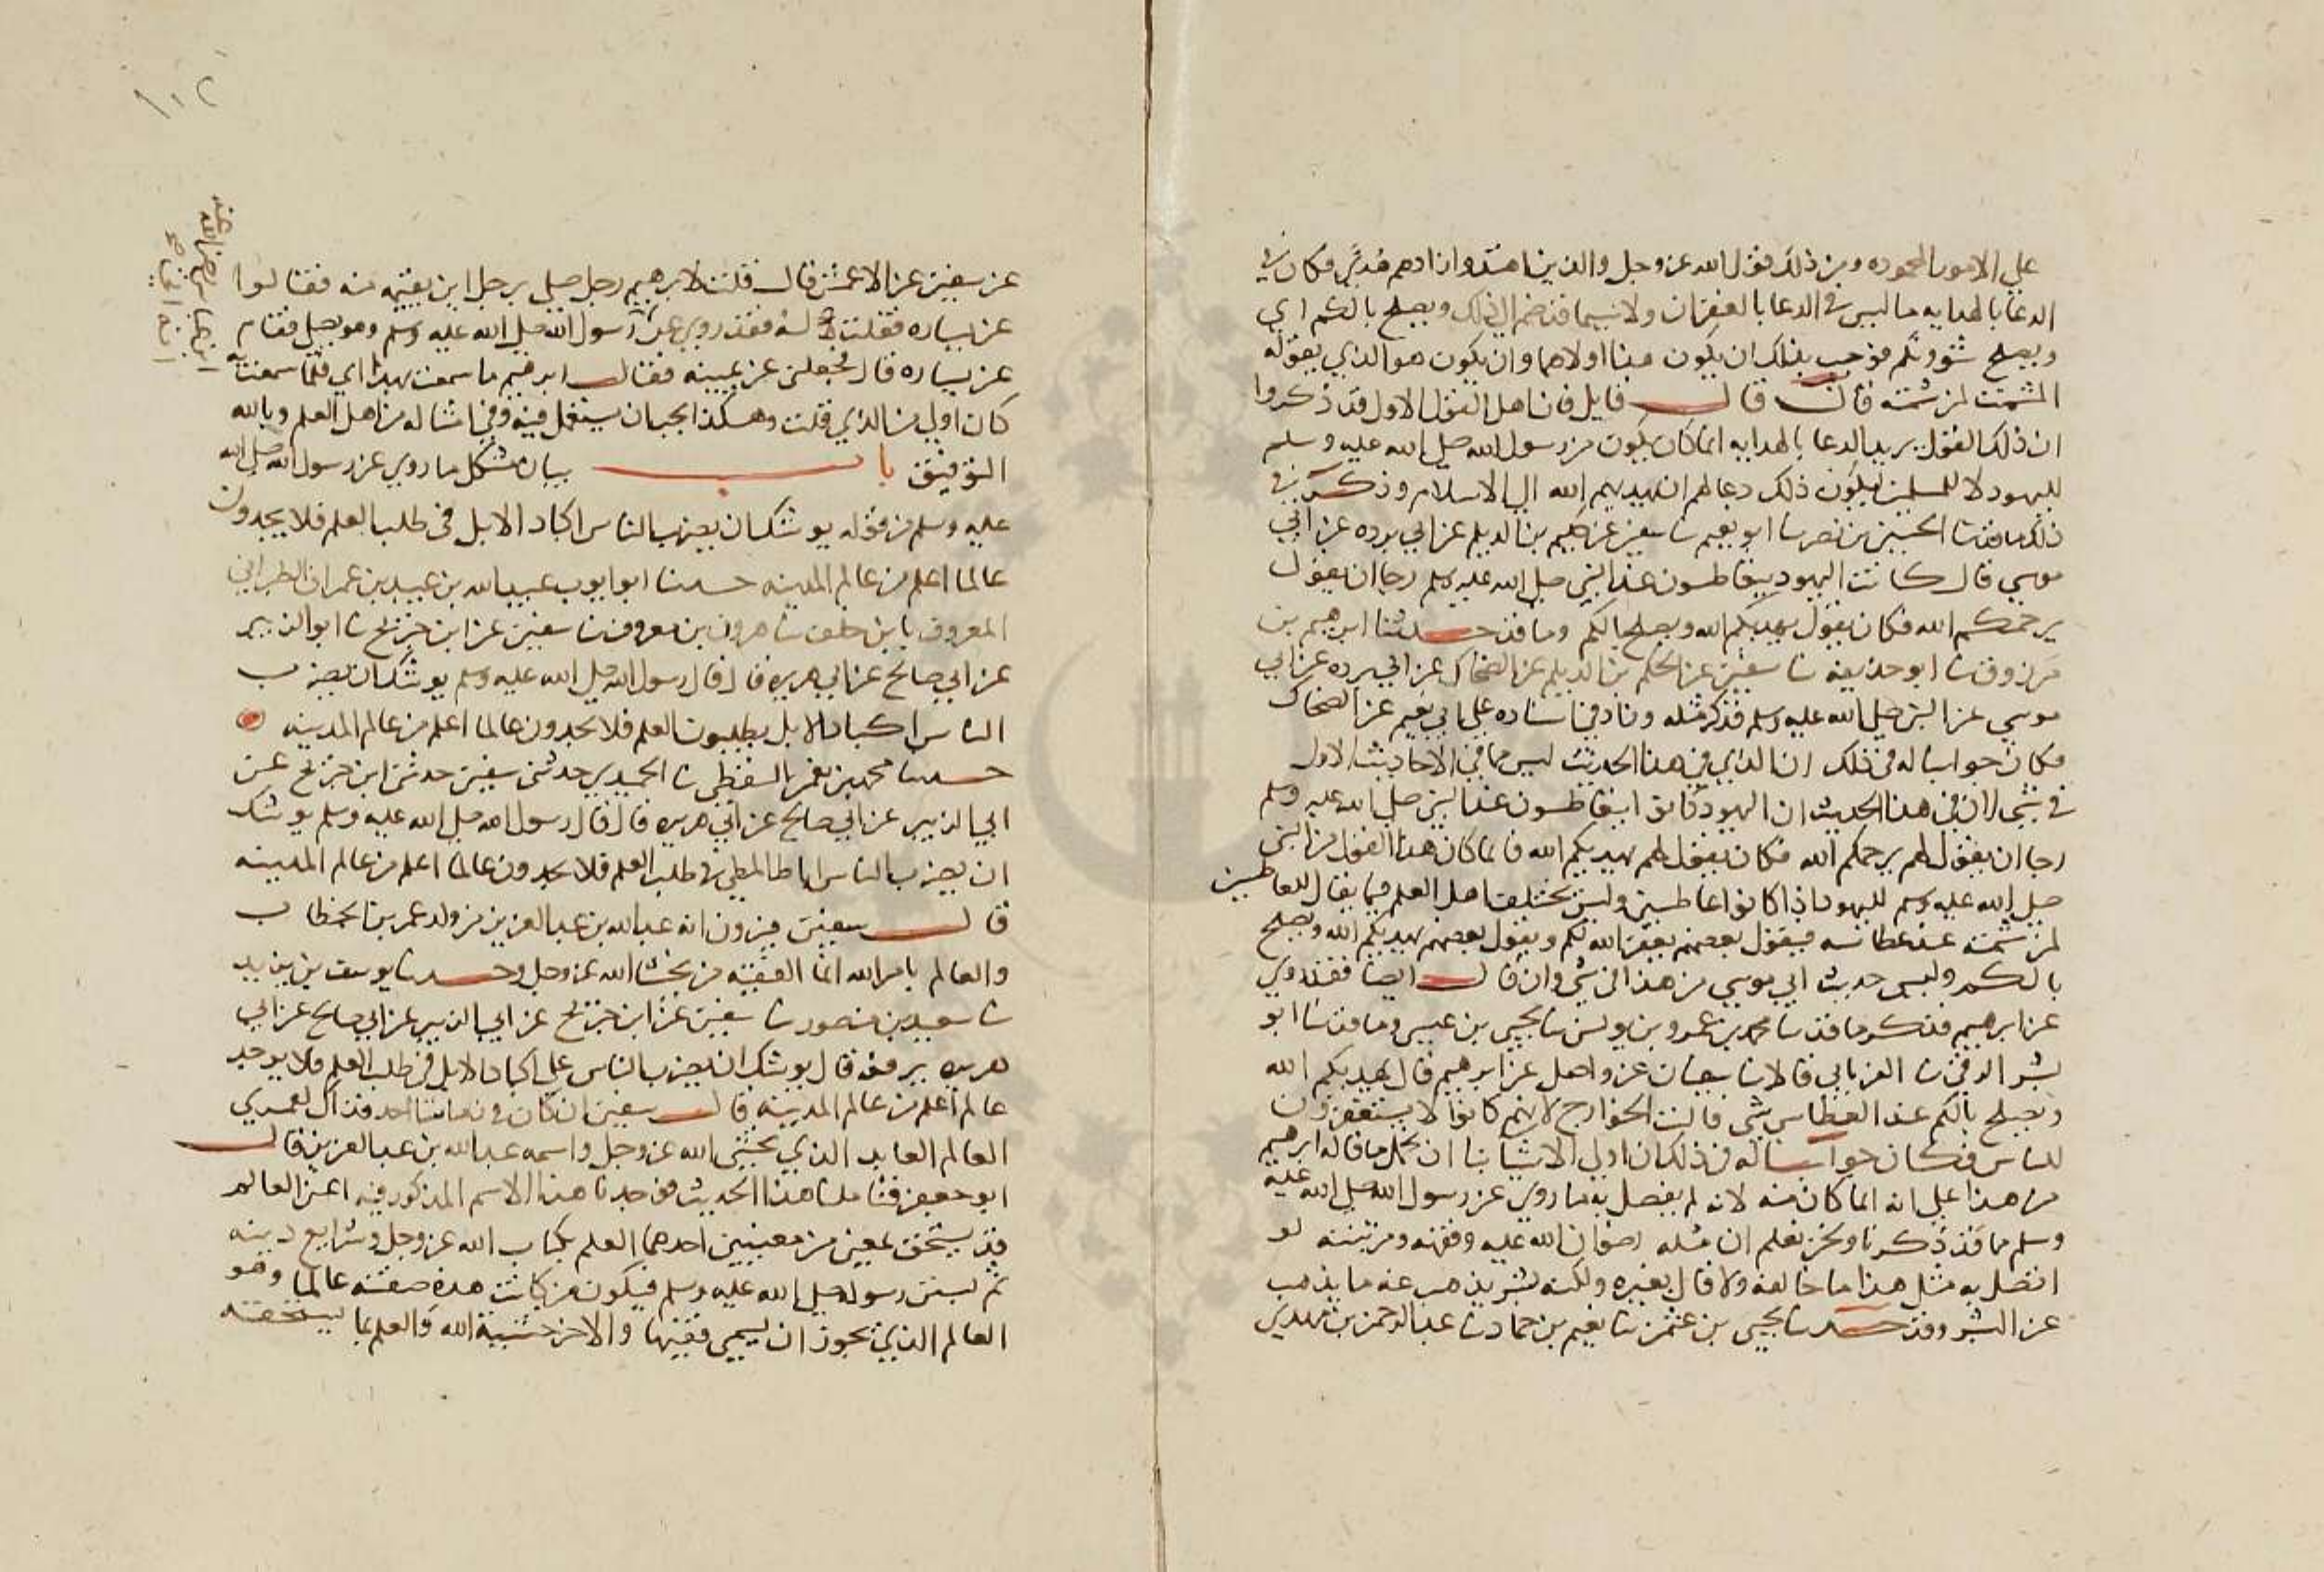 علي الامور المحموده ومن ذلك قول الله عز وجل والذين اهتدوا زادهم هدًى فكان في
الدعا بالهدايه ما ليس في الدعا بالغفران ولا سيما قد ضم الى ذلك ويصلح بالكم اي
ويصلح شوونكم فوجب بذلك ان يكون هذا اولاهما وان يكون هو الذي يقوله
المشمت لمن شمته قال قال قايل فان اهل القول الاول قد ذكروا
ان ذلك القول يريد الدعا بالهدايه انما كان يكون من رسول الله صلى الله عليه وسلم
لليهود لا للمسلمين ليكون ذلك دعا لهم ان يهديهم الله الى الاسلام وذكر في
ذلك ما قد ثنا الحسين بن نصر ثنا ابو نعيم ثنا سفين عن حكيم بن الديلم عن ابي برده عن ابي
موسي قال كانت اليهود يتعاطسون عند النبي صلى الله عليه وسلم رجا ان يقول
يرحمكم الله فكان يقول يهديكم الله ويصلح بالكم وما قد حدثنا ابرهيم بن
مرزوق ثنا ابو حذيفه ثنا سفين عن الحكم بن الديلم عن الضحاك عن ابي برده عن ابي
موسي عن النبي صلى الله عليه وسلم فذكر مثله وزاد في اسناده علي ابي نعيم عن الضحاك
فكان جوابنا له في ذلك ان الذي في هذا الحديث ليس مما في الاحاديث الاول
في شي لان في هذا الحديث ان اليهود كانوا يتعاطسون عند النبي صلى الله عليه وسلم
رجا ان يقول لهم يرحمكم الله فكان يقول لهم يهديكم الله فانما كان هذا القول من النبي
صلى الله عليه وسلم لليهود اذا كانوا عاطسين وليس يختلف اهل العلم فيما يقال للعاطسين
لمن شمته عند عطاسه فيقول بعضهم يغفر الله لكم ويقول بعضهم يهديكم الله ويصلح
بالكم وليس حديث ابي موسي من هذا في شي وان قال ايضا فقد روي
عن ابرهيم فذكر ما قد ثنا محمد بن عمرو بن يونس ثنا يحيي بن عيسى وما قد ثنا ابو
بشر الرقي ثنا الفريابي قالا ثنا سفيان عن واصل عن ابرهيم قال يهديكم الله
ويصلح بالكم عند العطاس شي قالته الخوارج لانهم كانوا لا يستغفرون
للناس فكان جوابنا له في ذلك ان اولي الاشيا بنا ان نحمل ما قاله ابرهيم
من هذا علي انه انما كان منه لانه لم يتصل به ما روي عن رسول الله صلى الله عليه
وسلم مما قد ذكرنا ونحن نعلم ان مثله رضوان الله عليه وفقهه ومرتبته لو
اتصل به مثل هذا ما خالفه ولا قال بغيره ولكنه بشر يذهب عنه ما يذهب
عن البشر وقد حدثنا يحيي بن عثمن ثنا نعيم بن حماد ثنا عبد الرحمن بن مهدي
١٠٢
عن سفين عن الاعمش قال قلت لابرهيم رجل صلي برجل اين يقيمه منه فقالوا
عن يساره فقلت له انه فقد روي عن رسول الله صلى الله عليه وسلم وهو يصلي فقام
عن يساره قال فجعلني عن يمينه فقال ابرهيم ما سمعت بهذا اي فلما سمعت به
كان اولي من الذي قلت وهكذا يجب ان يستعمل فيه وفي امثاله من اهل العلم وبالله
التوفيق باب بيان مشكل ما روي عن رسول الله صلى الله
عليه وسلم من قوله يوشك ان يضرب الناس اكباد الابل في طلب العلم فلا يجدون
عالما اعلم من عالم المدينه حدثنا ابو ايوب عبيد الله بن عبيد بن عمران الطبراني
المعروف بابن خلف ثنا هرون بن معروف ثنا سفين عن ابن جريج ثنا ابو الزبير
عن ابي صالح عن ابي هريره قال قال رسول الله صلى الله عليه وسلم يوشك ان يضرب
الناس اكباد الابل يطلبون العلم فلا يجدون عالما اعلم من عالم المدينه
حدثنا محمد بن نعمن السقطي ثنا الحميدي حدثني سفين حدثني ابن جريج عن
ابي الزبير عن ابي صالح عن ابي هريره قال قال رسول الله صلى الله عليه وسلم يوشك
ان يضرب الناس اباط المطي في طلب العلم فلا يجدون عالما اعلم من عالم المدينه
قال سفين فيرون انه عبد الله بن عبد العزيز من ولد عمر بن الخطاب
والعالم بامر الله انما الفقيه من يخشى الله عز وجل وحدثنا يوسف بن يزيد
ثنا سعيد بن منصور ثنا سفين عن ابن جريج عن ابي الزبير عن ابي صالح عن ابي
هريره يرفعه قال يوشك ان يضرب الناس علي اكباد الابل في طلب العلم فلا يوجد
عالم اعلم من عالم المدينه قال سفين ان كان في زماننا احد فذاك العمري
العالم العابد الذي يخشى الله عز وجل واسمه عبد الله بن عبد العزيز قال
ابو جعفر فتاملنا هذا الحديث فوجدنا هذا الاسم المذكور فيه اعني العالم
قد يستحق بمعنيين من معنيين احدهما العلم بكتاب الله عز وجل وشرايع دينه
ثم لسنن رسوله صلى الله عليه وسلم فيكون من كانت هذه صفته عالما وهو
العالم الذي يجوز ان يسمي فقيها والاخر خشية الله والعلم بما يستحقه